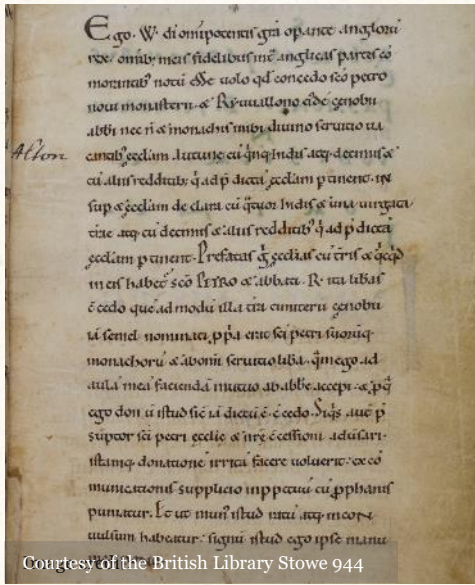 Ego. W. di omipotentis gra opante anglorū
rex. omib; meis fidelibus int anglicas partes cō
morantib; notū esse uolo qd concedo scō petro
noui monasterii & Ryuuallono eidē cenobii
abbi nec n & monachis inibi diuino seruitio ua
Alton
cantib; ęcclam Auuiltune cū quinq; hidis atq; decimis &
cū aliis redditib; q̄ ad p dictā ęcclam ptinent. in
sup & ęcclam de clara cū quatuor hidis & una uirgata
trae atq; cū decimis & aliis redditib; q̄ ad p dictā
ęcclam ptinent. Prefatas ęcclias cū tris & qcqd
in eis habet scō PETRO & abbati. R. ita libas
cedo quēad modū illa tra cimiterii cenobii
iā semel nominati, ppa erat sci petri suorūq;
monachorū & ab omi seruitio liba. quā ego ad
aula meā faciendā mutuo ab abbe accepi. & pq
ego don ū istud sic iā dictū ē cedo. Siqs aut p
suptor sci petri ecclie & nre cessioni aduersari.
istamq; donationē irritā facere uoluerit. exco
municationis supplicio inppetuū cū pphanis
puniatur. Et ut mun istud ratū atq; incon
uulsum habeatur. signū istud ego ipse manu
Courtesy of the British Library Stowe 944